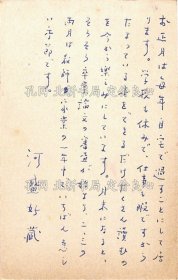 お正月は毎年自宅で過すことにして居
ります。学校も休みで、仕事も暇ですから
だまっている本をできるだけたくさん読むの
を今から楽しみにしています。月末になると、
そろそろ卒業論文の審査が始まる。この二
か月は教師の稼業の一年中でいちばん忙し
い季節です。
河盛好蔵